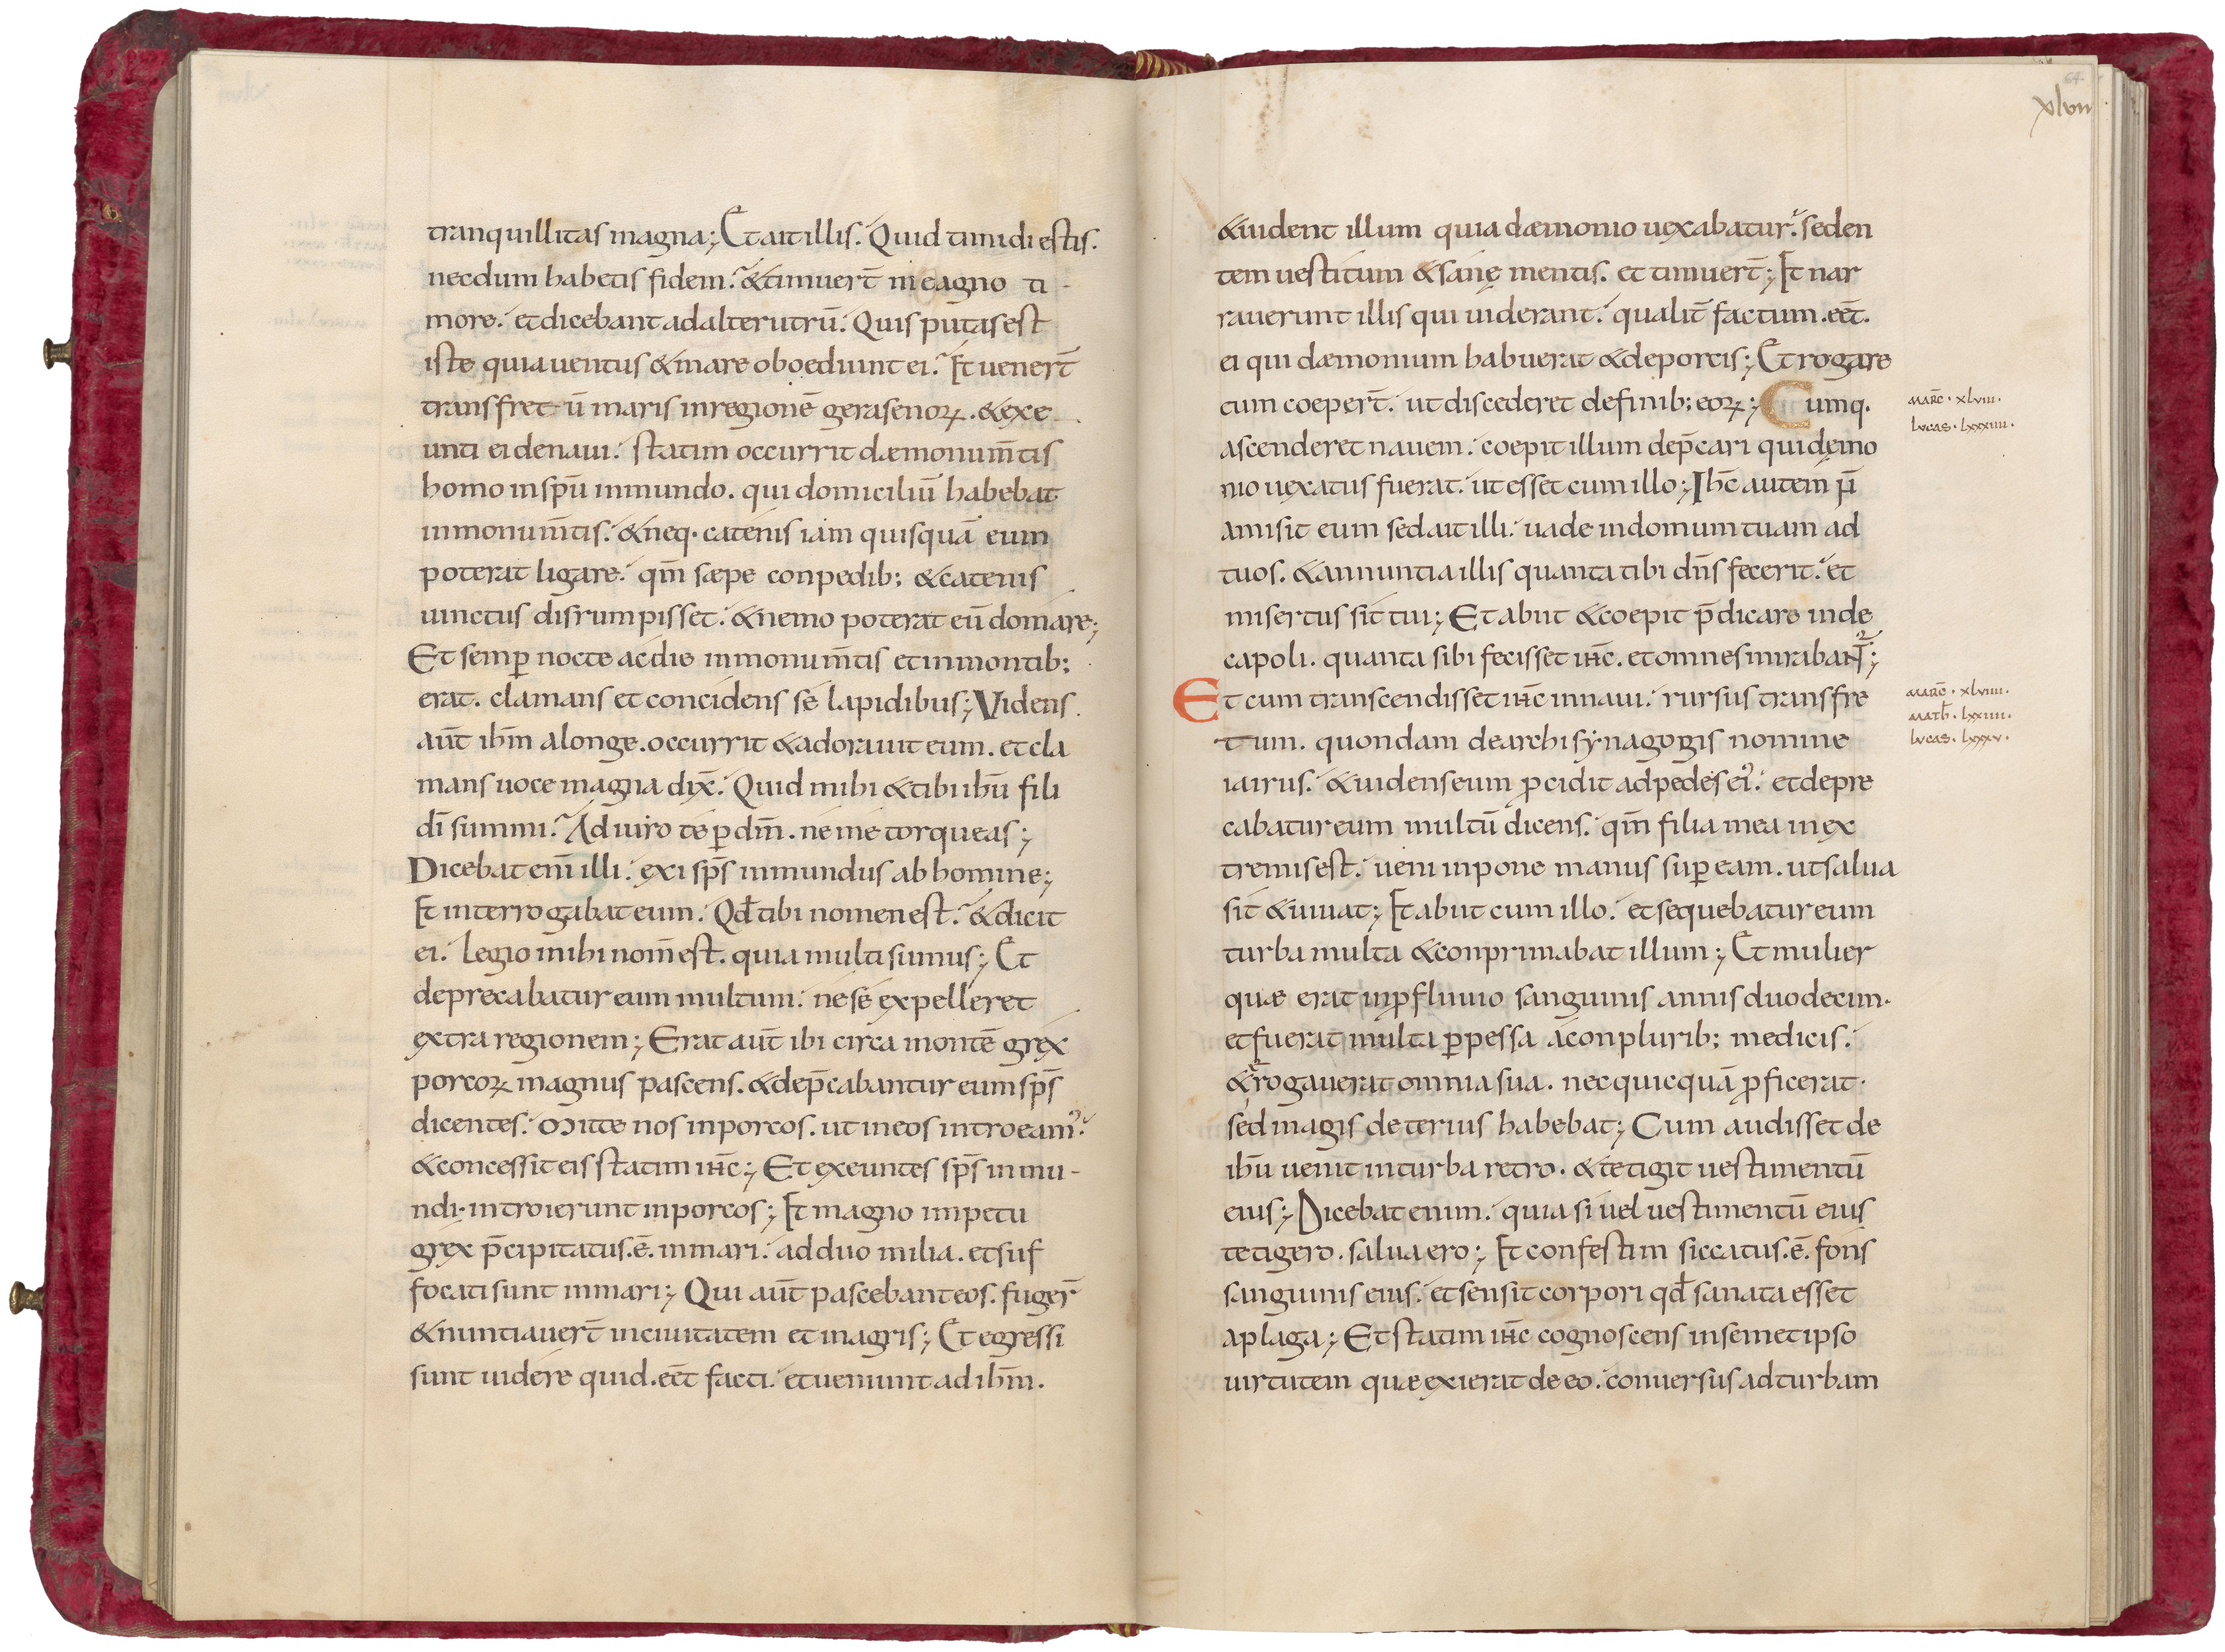 tranquillitas magna; Et ait illis. Quid timidi estis.
necdum habetis fidem? & timuer̄t magno ti-
more. et dicebant ad alterutrū. Quis putas est
iste quia uentus & mare oboediunt ei? Et uener̄t
trans fret ū maris in regionē gerasenoꝝ. & exe
unti ei de naui. statim occurrit dæmonum̄tis
homo in spū inmundo. qui domiciliū habebat
in monum̄tis. & neq. catenis iam quisquā eum
poterat ligare. qm̄ sæpe conpedib; & catenis
uinctus disrumpisset. & nemo poterat eū domare;
Et semꝑ nocte ac die in monum̄tis et in montib;
erat. clamans et concidens se lapidibus; Videns
aūt ihm̄ a longe. occurrit & adorauit eum. et cla
mans uoce magna dix̄. Quid mihi & tibi ihū fili
dī summi? Adiuro te ꝑ dm̄. ne me torqueas;
Dicebat enī illi. exi sp̄s inmundus ab homine;
Et interrogabat eum. Qd̄ tibi nomen est? & dicit
ei. Legio mihi nom̄ est. quia multi sumus; Et
deprecabatur eum multum. ne se expelleret
extra regionem; Erat aūt ibi circa montē grex
porcoꝝ magnus pascens. & dep̄cabantur eum sp̄s
dicentes. Mitte nos in porcos. ut in eos introeamꝰ.
& concessit eis statim ihc̄; Et exeuntes sp̄s inmu-
ndi. introierunt in porcos; Et magno impetu
grex p̄cipitatus .ē. in mari. ad duo milia. et suf
focati sunt in mari; Qui aūt pascebant eos. fuger̄
& nuntiauer̄t in ciuitatem et in agris; Et egressi
sunt uidere quid .eēt facti. et ueniunt ad ihm̄.
xlvii
& uident illum quia dæmonio uexabatur. seden
tem uestitum & sanę mentis. et timuer̄t; Et nar
rauerunt illis qui uiderant. qualit̄ factum .eēt.
ei qui dæmonium habuerat & de porcis; Et rogare
eum coeper̄t. ut discederet de finib; eoꝝ; Cumq.
marc̄. xlviii.
lucas. lxxxiiii.
ascenderet nauem. coepit illum dep̄cari qui dęmo
nio uexatus fuerat. ut esset cum illo; Ihc̄ autem n̄
amisit eum sed ait illi. uade in domum tuam ad
tuos. & annuntia illis quanta tibi dn̄s fecerit. et
misertus sit tui; Et abiit & coepit p̄dicare in de
capoli. quanta sibi fecisset ihc̄. et omnes mirabant̄;
Et cum transcendisset ihc̄ in naui. rursus trans fre
marc̄. xlviiii.
math̄. lxxiiii.
lucas. lxxxv.
tum. quondam de archisynagogis nomine
iairus. & uidens eum ꝓcidit ad pedes eiꝰ. et depre
cabatur eum multū dicens. qm̄ filia mea in ex
tremis est. ueni inpone manus suꝑ eam. ut salua
sit & uiuat; Et abiit cum illo. et sequebatur eum
turba multa & conprimabat illum; Et mulier
quæ erat in ꝓfluuio sanguinis annis duodecim.
et fuerat multa ꝑpessa a conplurib; medicis.
& erogauerat omnia sua. nec quicquā ꝓficerat.
sed magis deterius habebat; Cum audisset de
ihū uenit in turba retro. & tetigit uestimentū
eius; Dicebat enim. quia si uel uestimentū eius
tetigero. salua ero; Et confestim siccatus .ē. fons
sanguinis eius. et sensit corpori qd̄ sanata esset
a plaga; Et statim ihc̄ cognoscens in semetipso
uirtutem quæ exierat de eo. conuersus ad turbam